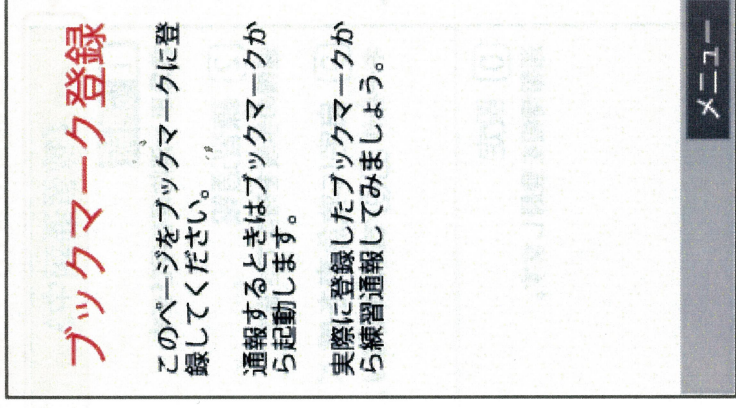 ブックマーク登録
このページをブックマークに登
録してください。
通報するときはブックマークか
ら起動します。
実際に登録したブックマークか
ら練習通報してみましょう。
メニュー